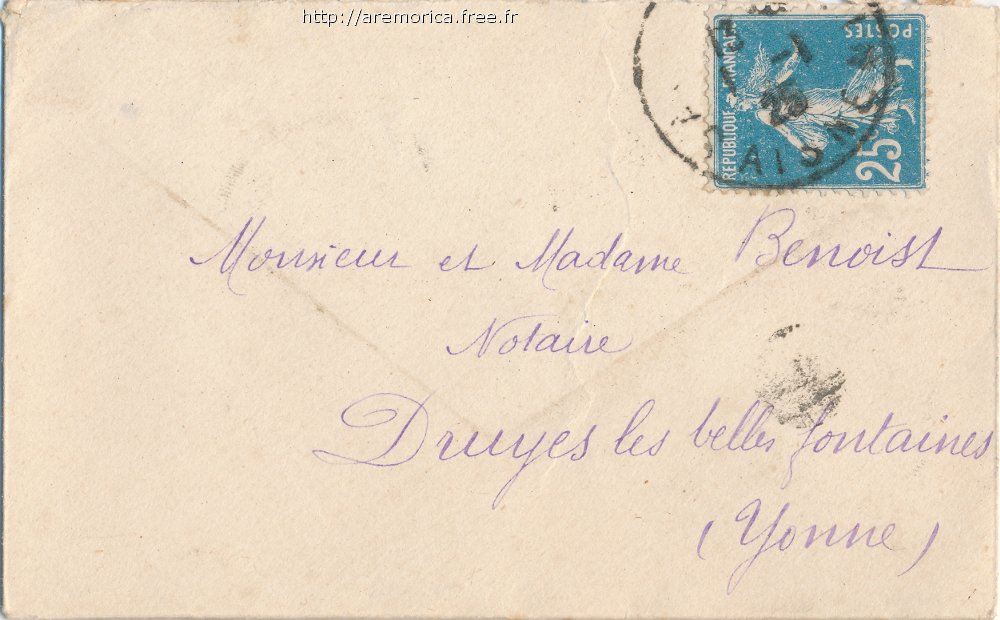 http://aremorica.free.fr
REPUBLIQUE FRANÇAISE
POSTES
25
Monsieur et Madame Benoist
Notaire
Druyes les belles fontaines
(Yonne)